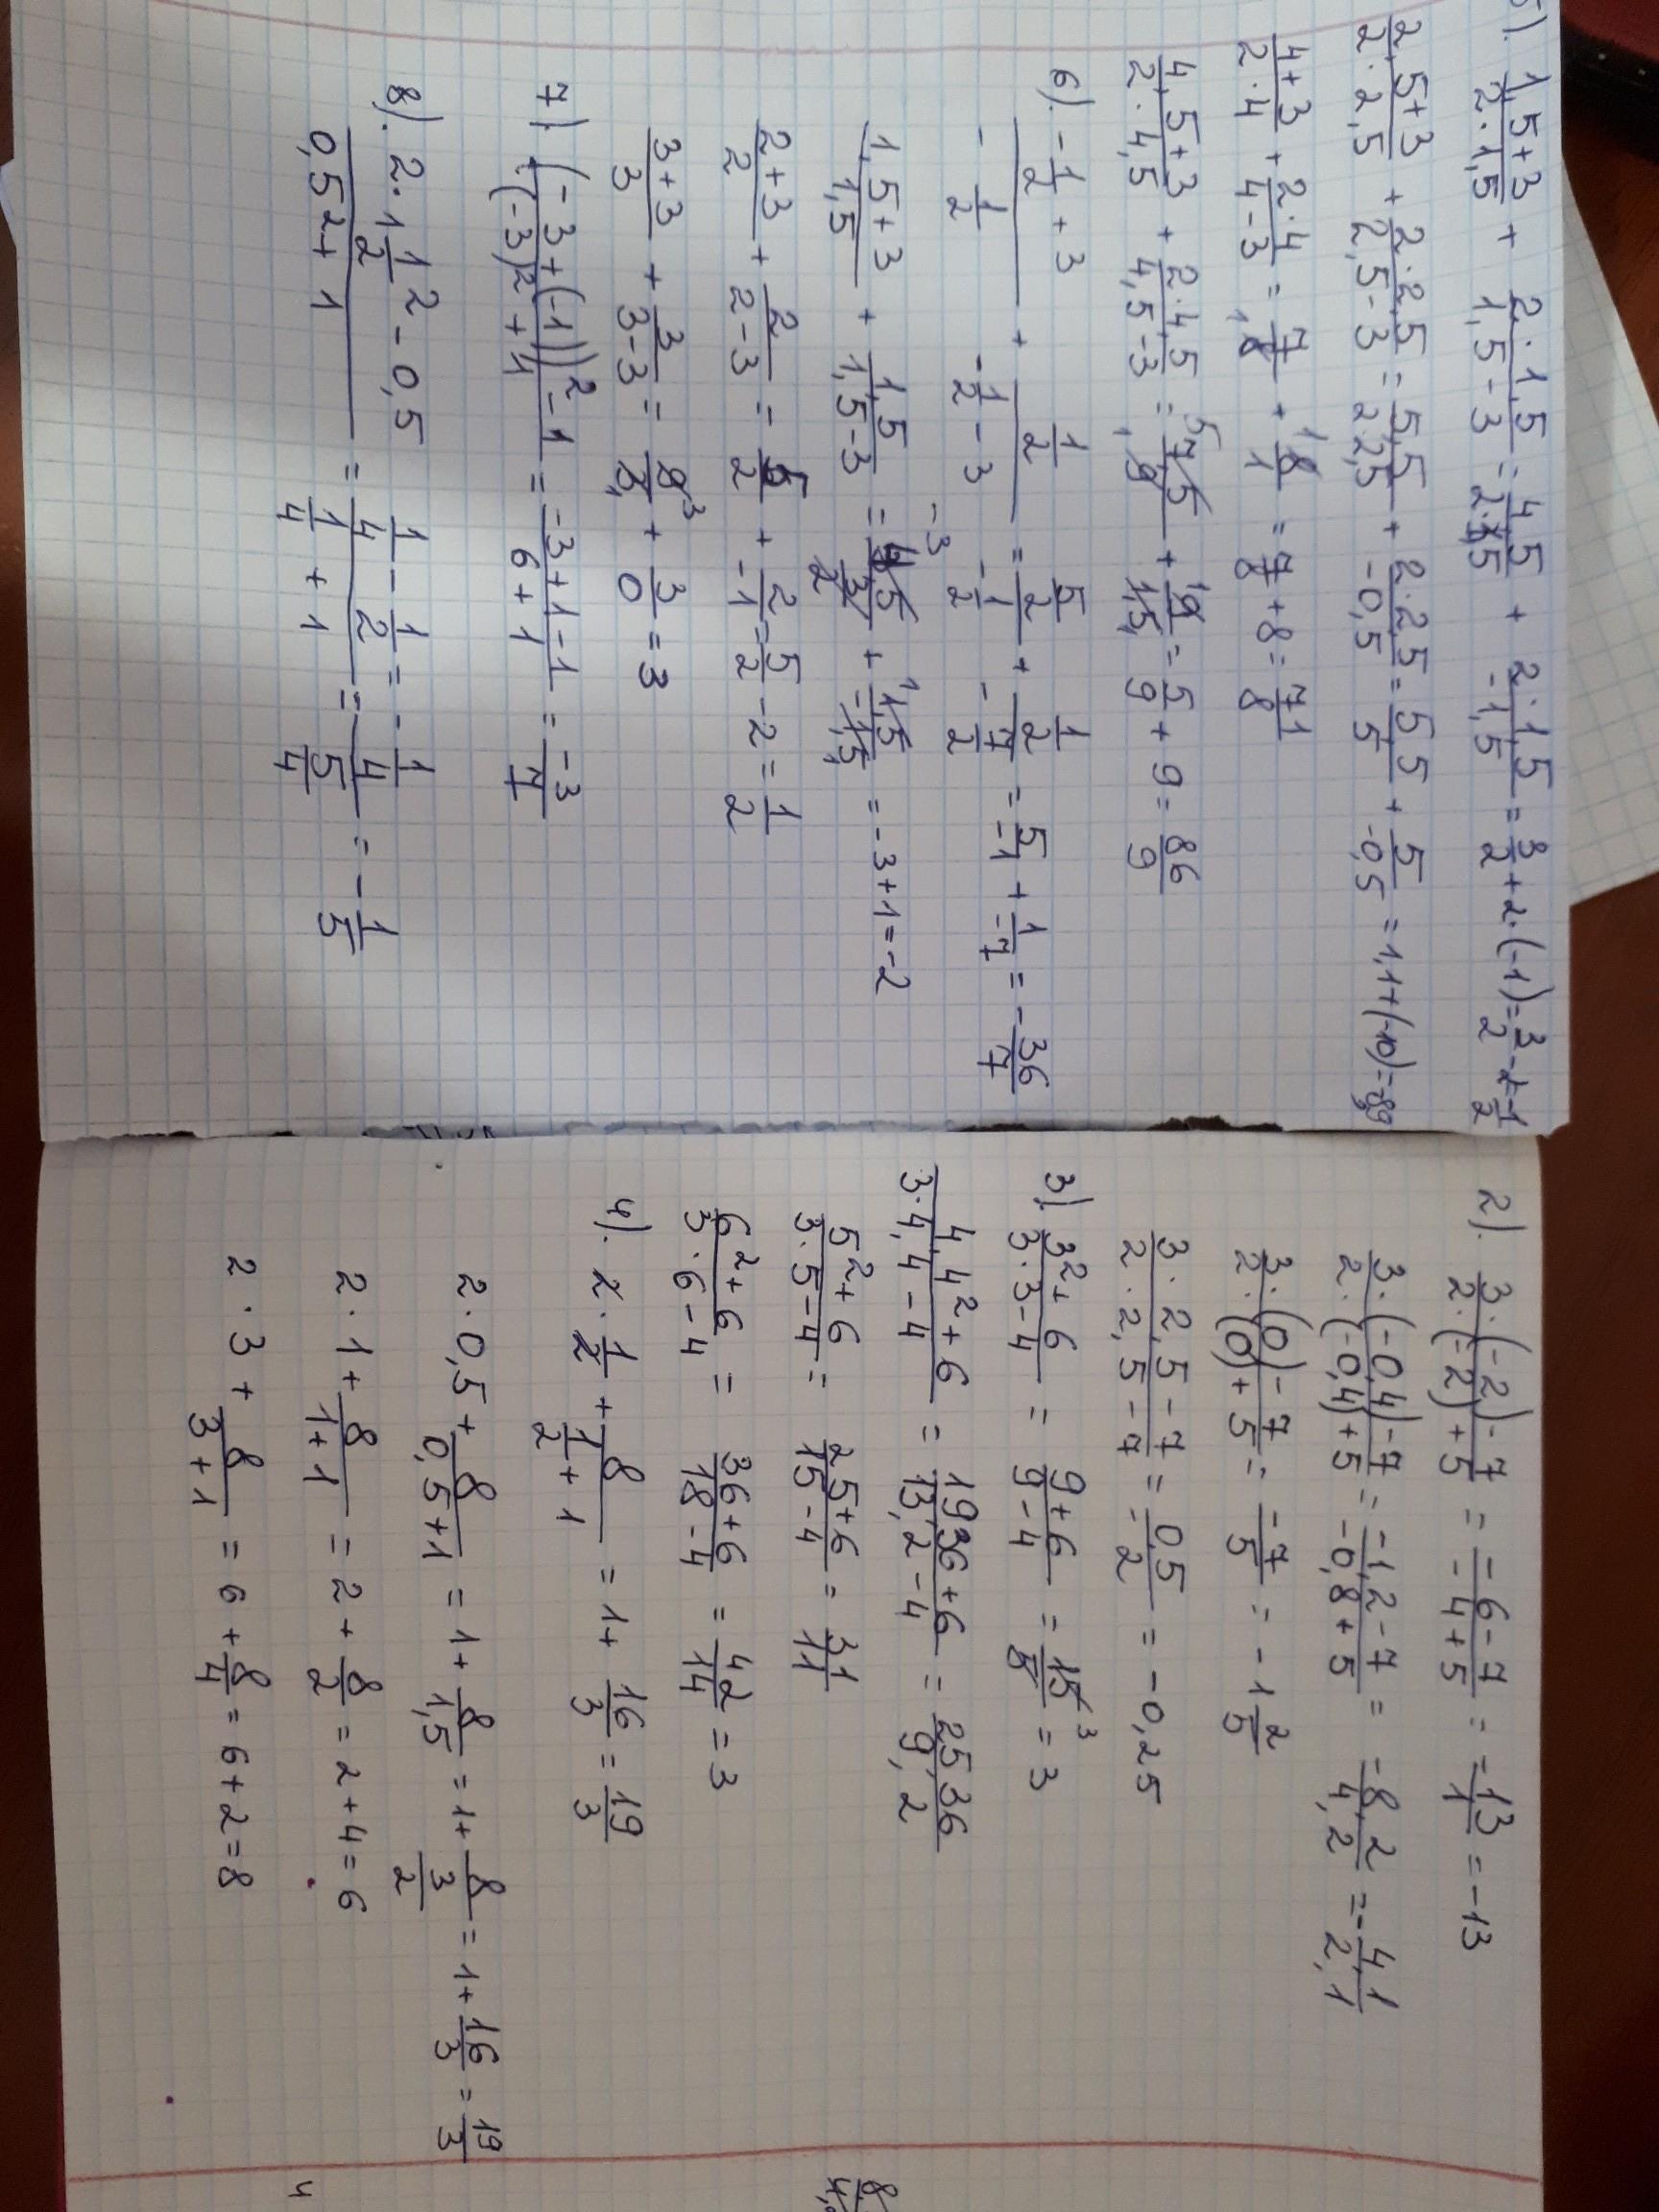 5). (1,5+3)/(2·1,5) + (2·1,5)/(1,5-3) = 4,5/(2·1,5) + (2·1,5)/(-1,5) = 3/2 + 2·(-1) = 3/2 - 2 = -1/2
(2,5+3)/(2·2,5) + (2·2,5)/(2,5-3) = 5,5/(2·2,5) + (2·2,5)/(-0,5) = 5,5/5 + 5/(-0,5) = 1,1+(-10) = -8,9
(4+3)/(2·4) + (2·4)/(4-3) = 7/8 + 8/1 = 7/8 + 8 = 71/8
(4,5+3)/(2·4,5) + (2·4,5)/(4,5-3) = 7,5/9 + 9/1,5 = 5/9 + 9 = 86/9
6). (-1/2+3)/(-1/2) + (1/2)/(-1/2-3) = (5/2)/(-1/2) + (1/2)/(-7/2) = 5/-1 + 1/-7 = -36/7
(1,5+3)/1,5 + 1,5/(1,5-3) = + 1,5/-1,5 = -3+1=-2
(2+3)/2 + 2/(2-3) = 5/2 + 2/-1 = 5/2 - 2 = 1/2
(3+3)/3 + 3/(3-3) = + 3/0 = 3
7). ((-3+(-1))² - 1)/((-3)²+1) = (-3+1-1)/(6+1) = -3/7
8). (2·1 1/2² - 0,5)/(0,5²+1) = (1/4 - 1/2)/(1/4 + 1) = (-1/4)/(5/4) = -1/5
2). (3·(-2)-7)/(2·(-2)+5) = (-6-7)/(-4+5) = -13/1 = -13
(3·(-0,4)-7)/(2·(-0,4)+5) = (-1,2-7)/(-0,8+5) = -8,2/4,2 = -4,1/2,1
(3·(0)-7)/(2·(0)+5) = -7/5 = -1 2/5
(3·2,5-7)/(2·2,5-7) = 0,5/-2 = -0,25
3) (3²+6)/(3·3-4) = (9+6)/(9-4) = 15/5 = 3
(4,4²+6)/(3·4,4-4) = (19,36+6)/(13,2-4) = 25,36/9,2
(5²+6)/(3·5-4) = (25+6)/(15-4) = 31/11
(6²+6)/(3·6-4) = (36+6)/(18-4) = 42/14 = 3
4). 2·1/2 + 8/(1/2+1) = 1+ 16/3 = 19/3
2·0,5+ 8/(0,5+1) = 1+ 8/1,5 = 1+ 8/(3/2) = 1+ 16/3 = 19/3
2·1+ 8/(1+1) = 2+ 8/2 = 2+4=6
2·3+ 8/(3+1) = 6+ 8/4 = 6+2=8